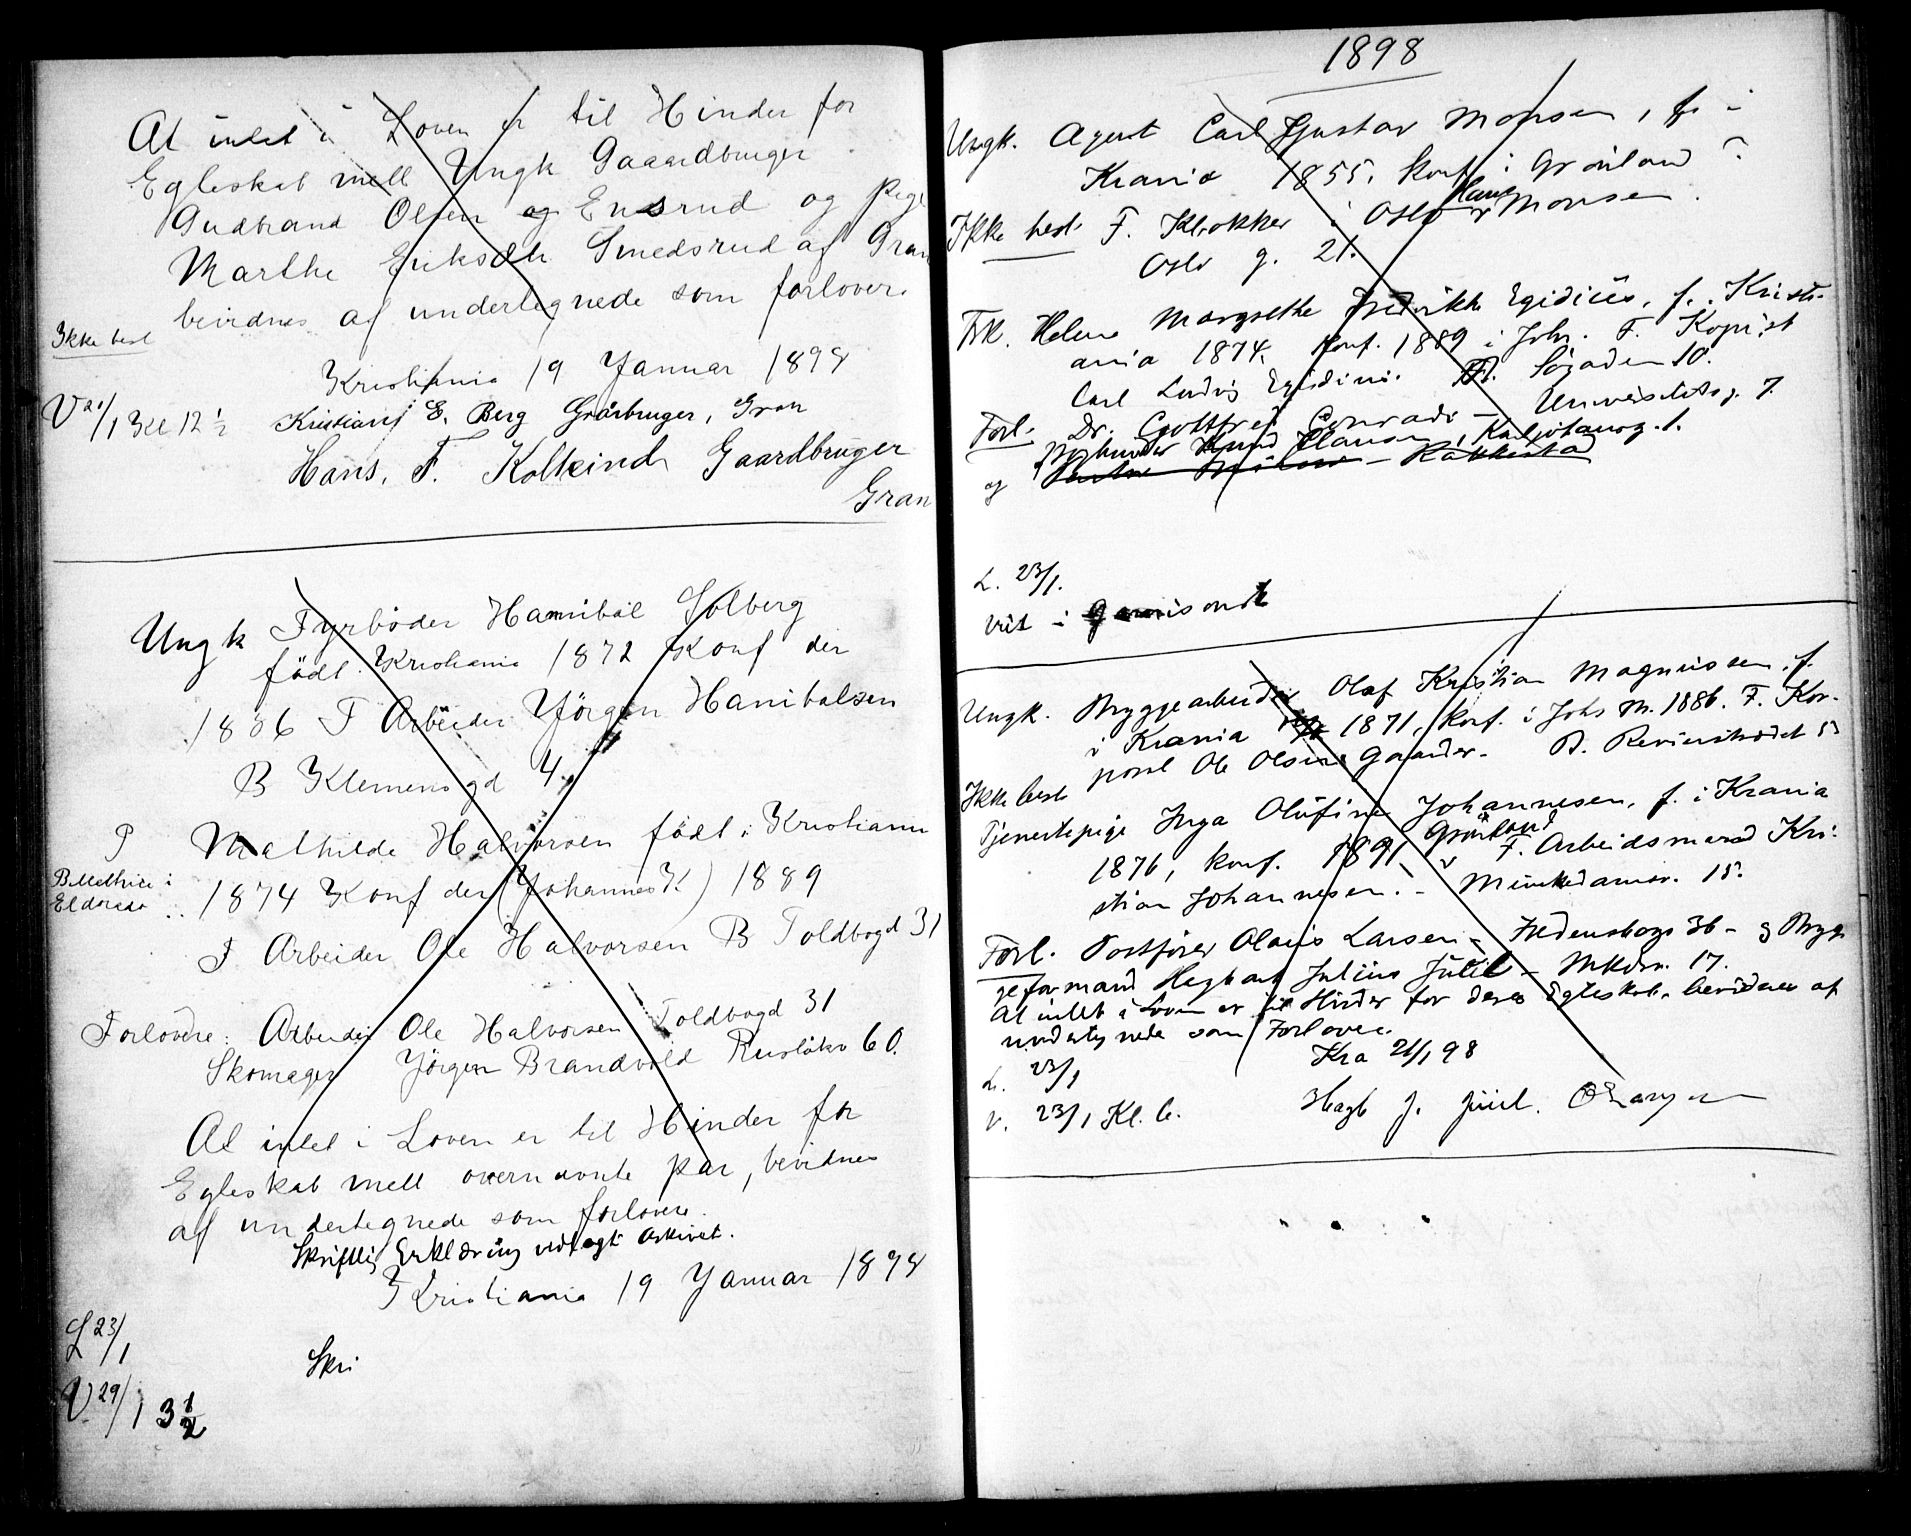 At intet i Loven er til Hinder for
Egteskab mell Ungk Gaaardbruger
Gudbrand Olsen Ensrud og Pige
Marthe Eriksdtr Smedsrud af Gran
bevidnes af undertegnede som forlovere.
Ikke best
Kristiania 19 Januar 1898
V 20/1 Kl 12 1/2
Kristian E. Berg Gårbruger, Gran
Hans. F. Kolkind Gaardbruger
Gran
Ungk Fyrbøder Hannibal Solberg
født Kristiania 1872 Konf der
1886 F Arbeider Jørgen Hanibalsen
B Klemensgd 4.
P Mathilde Halvorsen født i Kristiania
B. Mathise i
Eldorado
1874 Konf der (Johannes K.) 1889
F Arbeider Ole Halvorsen B Toldbogd 31
Forlovere: Arbeider Ole Halvorsen Toldbogd 31
Skomager Jørgen Brandvold Rusløkv 60.
At intet i Loven er til Hinder for
Egteskab mell overnævnte par, bevidnes
af undertegnede som forlovere.
Skriftlig Erklæring vedlagt Arkivet.
Kristiania 19 Januar 1898
L 23/1
Skri
V 29/1 3 1/2
1898
Ungk. Agent Carl Gustav Monsen, f. i
Krania 1855, konf. i Grønland ?
Ikke best. F. Klokker i Oslo Hans Monsen.
Oslo g. 21.
Frk. Helene Margrethe Fredrikke Egidius, f. Kristi-
ania 1874. Konf. 1889 i Johs. F. Kopist
Carl Ludvig Egidius. B. Søgaden 10.
Forl. Dr. Gottfred Conradi - Universitetsg. 7.
Boghandler Sigurd Clausen, Karl Johansg. 1.
og
L. 23/1.
Viet i Garnisonsk
Ungk. Bryggearbeider Olaf Kristian Magnussen, f.
i Krania 1871, konf. i Johs M. 1886. F. Kor-
poral Ole Olsen Gaarder. B. Revierstrædet 5
Ikke best
Tjenestepige Inga Olufine Johannesen, f. i Krania
1876, konf. 1891 Grønland F. Arbeidsmand Kri-
stian Johannesen. - Munkedamsv. 15.
Forl. Postfører Olaus Larsen - Fredensborgv 36 - og Bryg-
geformand Hagbart Julius Juel - Mkdsv. 17.
At intet i Loven er til Hinder for deres Egteskab, bevidnes af
undertegnede som Forlovere.
L. 23/1
Kra 21/1 98
V. 23/1 Kl. 6.
Hagb J. Juel. O Larsen